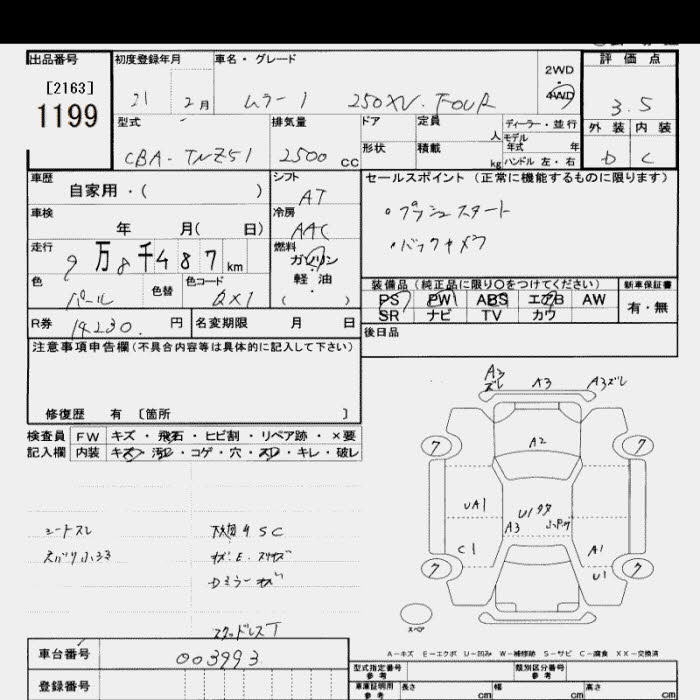 出品番号 初度登録年月 車名・グレード 2WD 評価点
[2163] 4WD
1199 21 2月 ムラーノ 250XV.FOUR 3.5
型式 排気量 ドア 定員 人 ディーラー・並行 外装 内装
モデル年式 年
CBA-TNZ51 2500cc 形状 積載 kg ハンドル 左・右 D C
車歴 自家用・( ) シフト AT セールスポイント(正常に機能するものに限ります)
車検 年 月( 日) 冷房 AAC ・プッシュスタート
走行 9万8千487km 燃料 ガソリン ・バックカメラ
色 パール 色替 色コード QX1 軽油 ( )
装備品(純正品に限り○をつけてください) 新車保証書
PS PW ABS エアB AW 有・無
SR ナビ TV カワ
R券 14230.円 名変期限 月 日 後日品
注意事項申告欄(不具合内容等は具体的に記入して下さい)
修復歴 有 〔箇所 〕
検査員 FW キズ・飛石・ヒビ割・リペア跡・×要
記入欄 内装 キズ・汚レ・コゲ・穴・スレ・キレ・破レ
A3 ズレ A3 A3ズレ
ワ ワ
A2
UA1 U1 A3
C1 A1
ワ U1 ワ
シートスレ S C
Dミラーキズ
スタッドレスT
スペア
A-キズ E-エクボ U-凹み W-補修跡 S-サビ C-腐食 XX-交換済
車台番号 003993 型式指定番号 参考 類別区分番号 参考
登録番号 車庫証明用 参考 長さ cm 幅 cm 高さ cm